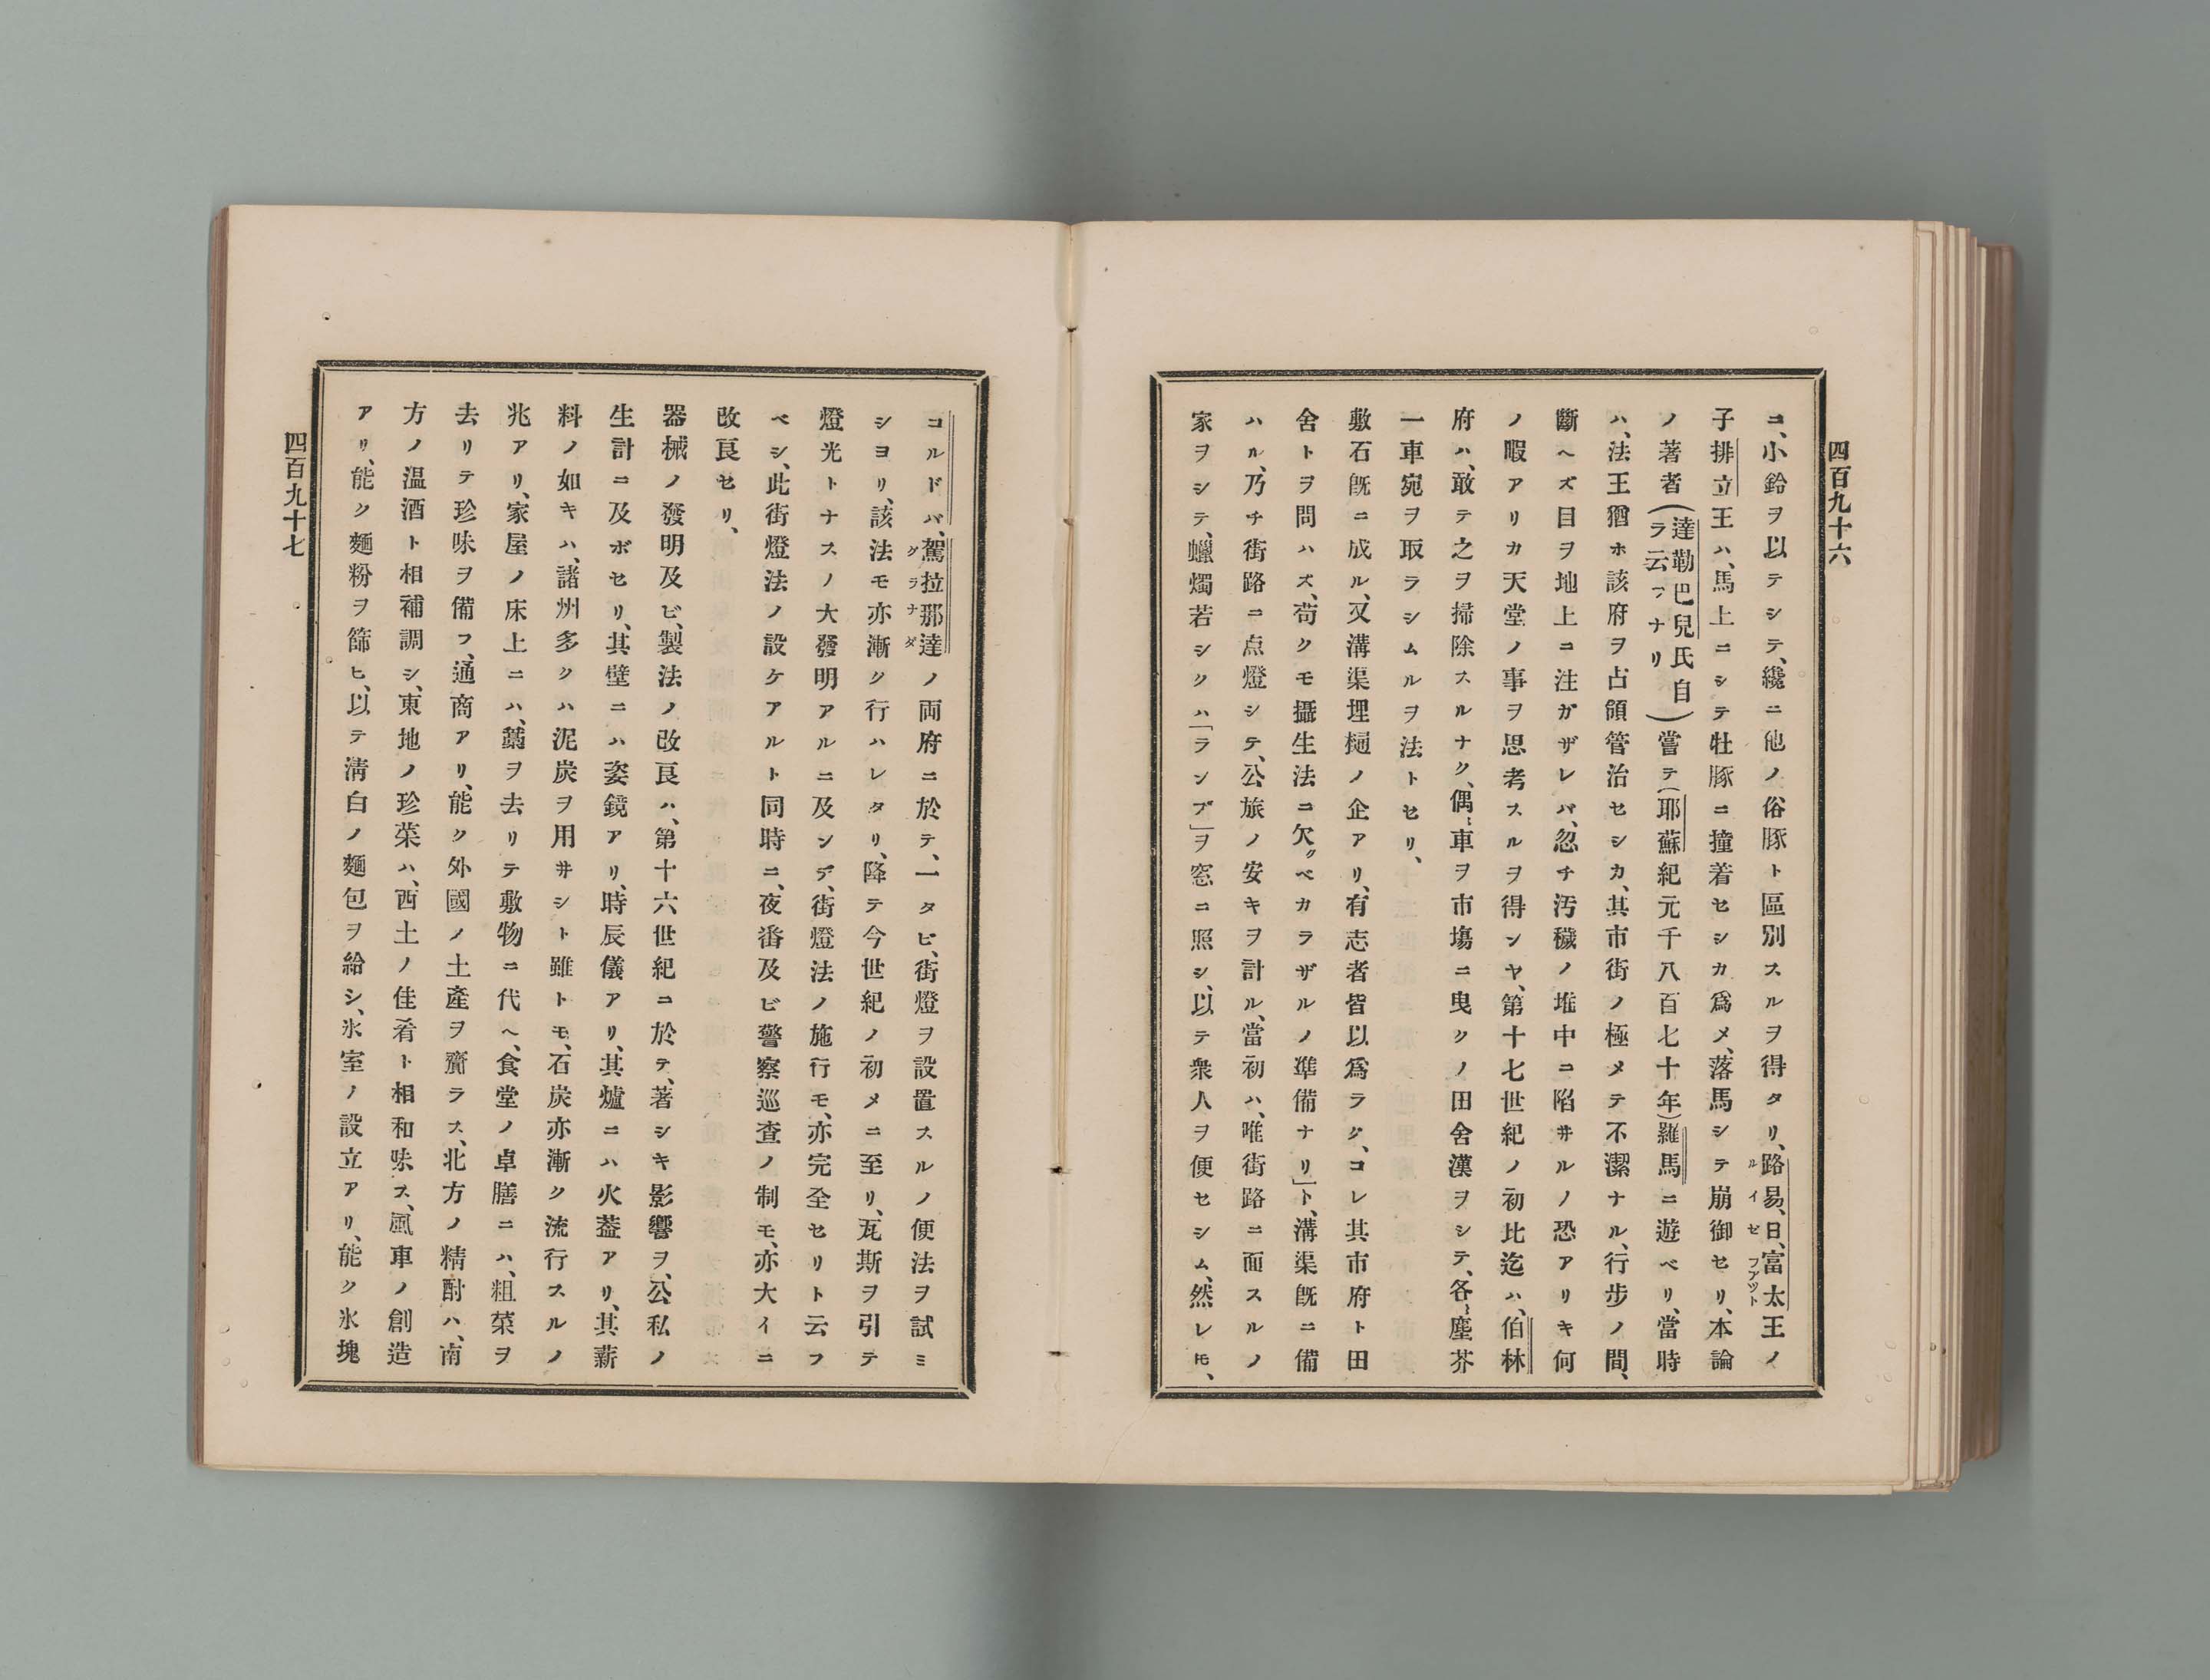 四百九十六
ニ、小鈴ヲ以テシテ、纔ニ他ノ俗豚ト區別スルヲ得タリ、路易、日、富太王ノ
ルイゼフアツト
子排立王ハ、馬上ニシテ牡豚ニ撞着セシカ爲メ、落馬シテ崩御セリ、本論
ノ著者(達勒巴兒氏自ラ云フナリ)嘗テ(耶蘇紀元千八百七十年)羅馬ニ遊ベリ、當時
ハ、法王猶ホ該府ヲ占領管治セシカ、其市街ノ極メテ不潔ナル、行步ノ間、
斷ヘズ目ヲ地上ニ注ガザレバ、忽チ汚穢ノ堆中ニ陷井ルノ恐アリキ何
ノ暇アリカ天堂ノ事ヲ思考スルヲ得ンヤ、第十七世紀ノ初比迄ハ、伯林
府ハ、敢テ之ヲ掃除スルナク、偶〻車ヲ市塲ニ曳クノ田舍漢ヲシテ、各〻塵芥
一車宛ヲ取ラシムルヲ法トセリ、
敷石旣ニ成ル、又溝渠埋樋ノ企アリ、有志者皆以爲ラク、コレ其市府ト田
舍トヲ問ハズ、苟クモ攝生法ニ欠クベカラザルノ準備ナリ」ト、溝渠旣ニ備
ハル、乃チ街路ニ点燈シテ、公旅ノ安キヲ計ル、當初ハ、唯街路ニ面スルノ
家ヲシテ、蠟燭若シクハ「ランプ」ヲ窓ニ照シ、以テ衆人ヲ便セシム、然レ𪜈、
コルドバ、駕拉那達ノ両府ニ於テ、一タビ、街燈ヲ設置スルノ便法ヲ試ミ
グラナダ
シヨリ、該法モ亦漸ク行ハレタリ、降テ今世紀ノ初メニ至リ、瓦斯ヲ引テ
燈光トナスノ大發明アルニ及ンデ、街燈法ノ施行モ、亦完全セリト云フ
ベシ、此街燈法ノ設ケアルト同時ニ、夜番及ビ警察巡査ノ制モ、亦大イニ
改良セリ、
器械ノ發明及ビ、製法ノ改良ハ、第十六世紀ニ於テ、著シキ影響ヲ、公私ノ
生計ニ及ボセリ、其壁ニハ姿鏡アリ、時辰儀アリ、其爐ニハ火葢アリ、其薪
料ノ如キハ、諸州多クハ泥炭ヲ用井シト雖トモ、石炭亦漸ク流行スルノ
兆アリ、家屋ノ床上ニハ、藁ヲ去リテ敷物ニ代ヘ、食堂ノ卓膳ニハ、粗菜ヲ
去リテ珍味ヲ備フ、通商アリ、能ク外國ノ土產ヲ齎ラス、北方ノ精酎ハ、南
方ノ温酒ト相補調シ、東地ノ珍菜ハ、西土ノ佳肴ト相和味ス、風車ノ創造
アリ、能ク麵粉ヲ篩ヒ、以テ淸白ノ麵包ヲ給シ、氷室ノ設立アリ、能ク氷塊
四百九十七